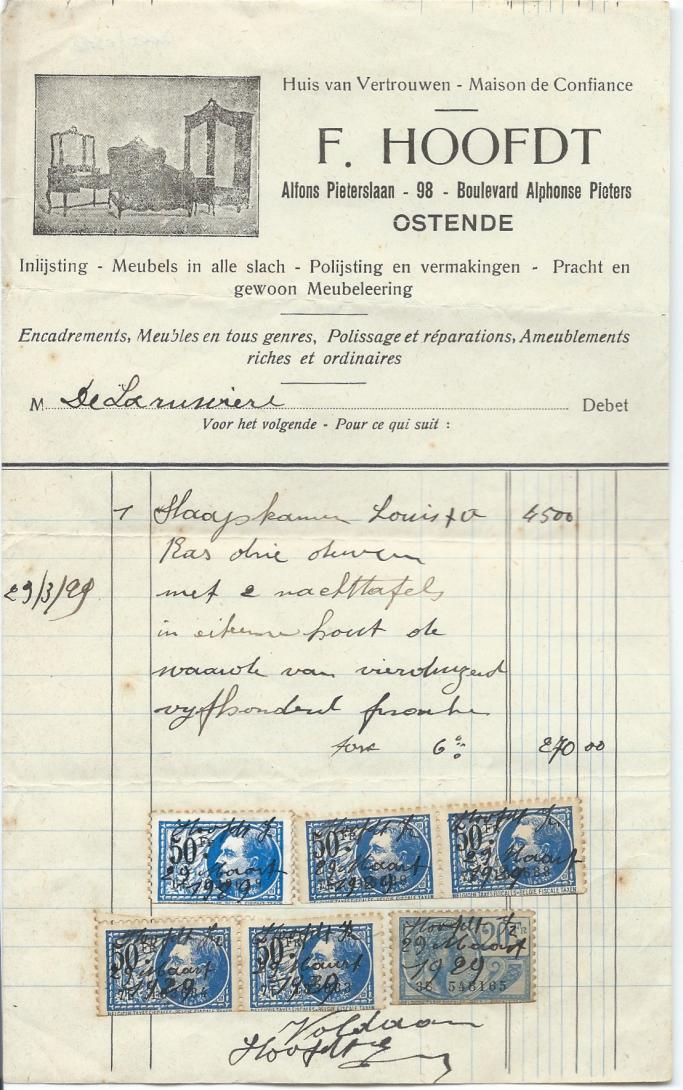 Huis van Vertrouwen - Maison de Confiance
F. HOOFDT
Alfons Pieterslaan - 98 - Boulevard Alphonse Pieters
OSTENDE
Inlijsting - Meubels in alle slach - Polijsting en vermakingen - Pracht en
gewoon Meubeleering
Encadrements, Meubles en tous genres, Polissage et réparations, Ameublements
riches et ordinaires
M De Laruwiere Debet
Voor het volgende - Pour ce qui suit :
1 Slaapskamer Louis XV 4500
Kas drie deuren
29/3/29 met 2 nachttafels
in eikene hout de
waarde van vierduizend
vyfhonderd franken
taxe 6% 270 00
Hoofdt Fz
50 Fr
29 Maart
1929
Hoofdt Fz
50 Fr
29 Maart
1929
Hoofdt Fz
50 Fr
29 Maart
1929
Hoofdt Fz
50 Fr
29 Maart
1929
Hoofdt Fz
50 Fr
29 Maart
1929
Hoofdt Fz
20 Fr
29 Maart
1929
38 548165
Voldaan
Hoofdt Fz